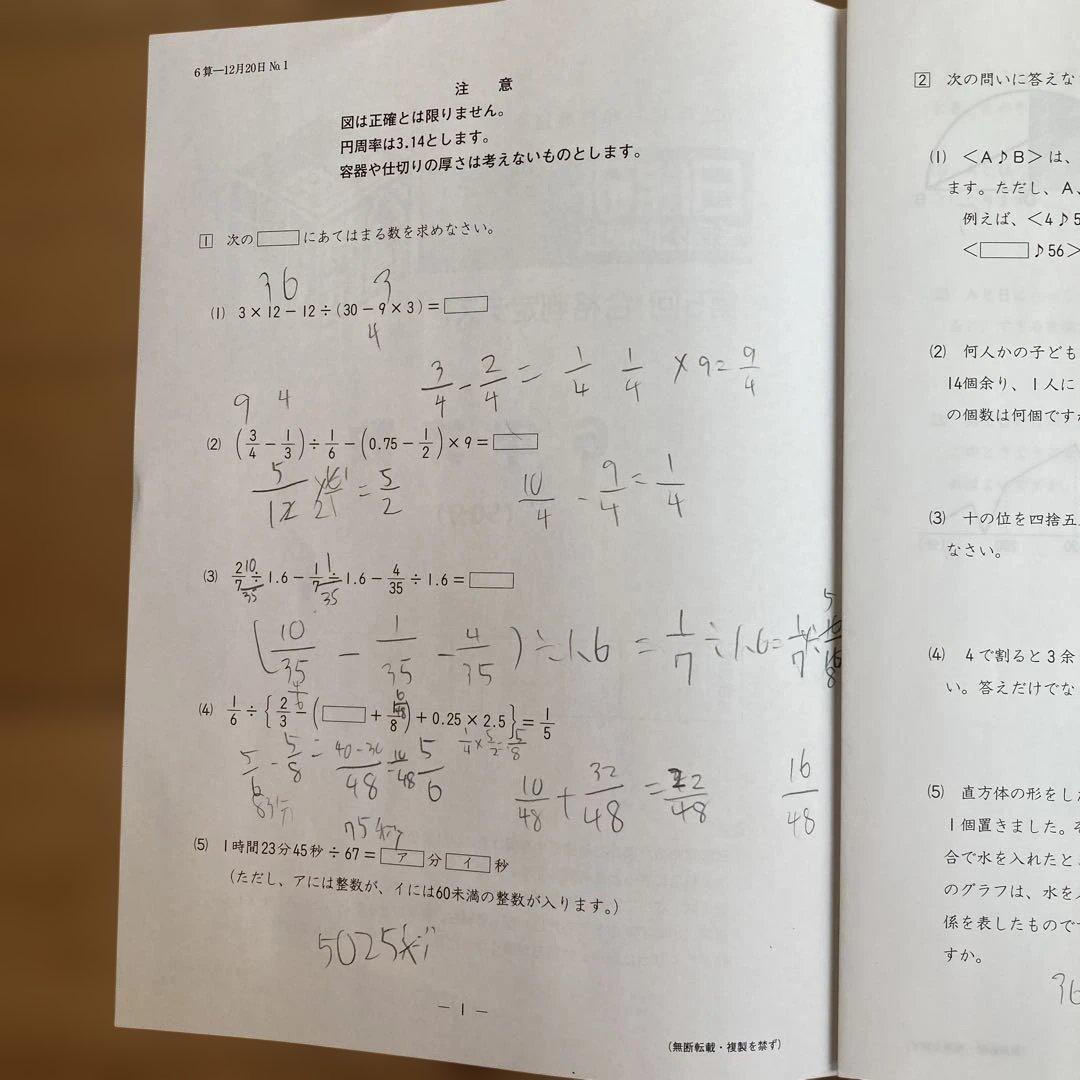 6算―12月20日 №1
注 意
図は正確とは限りません。
円周率は3.14とします。
容器や仕切りの厚さは考えないものとします。
1 次の□にあてはまる数を求めなさい。
36 3
(1) 3×12－12÷(30－9×3)＝□
4
3/4 － 2/4 ＝ 1/4 1/4 ×9＝ 9/4
9 4
(2) (3/4－1/3)÷1/6－(0.75－1/2)×9＝□
5/12 ＝ 5/2 10/4 － 9/4 ＝ 1/4
(3) 2/7÷1.6－1/7÷1.6－4/35÷1.6＝□
10/35 1/35
(10/35 － 1/35 － 4/35)÷1.6 ＝ 1/7 ÷1.6＝
(4) 1/6÷{2/3－(□＋1/8)＋0.25×2.5}＝1/5
1/4×5/2＝5/8
5/6 － 5/8 ＝ 40－30/48 ＝ 10/48 5/6
10/48 ＋ 32/48 ＝ 42/48 16/48
83分
75秒
(5) 1時間23分45秒÷67＝ア分イ秒
(ただし、アには整数が、イには60未満の整数が入ります。)
5025秒
― 1 ―
(無断転載・複製を禁ず)
2 次の問いに答えな
(1) ＜A♪B＞は、
ます。ただし、A、
例えば、＜4♪5
＜□♪56＞
(2) 何人かの子ども
14個余り、1人に
の個数は何個ですか
(3) 十の位を四捨五
なさい。
(4) 4で割ると3余
い。答えだけでな
(5) 直方体の形をし
1個置きました。
合で水を入れたと
のグラフは、水を
係を表したもので
すか。
36